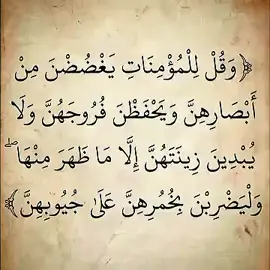 ﴿وَقُلْ لِلْمُؤْمِنَاتِ يَغْضُضْنَ مِنْ
أَبْصَارِهِنَّ وَيَحْفَظْنَ فُرُوجَهُنَّ وَلَا
يُبْدِينَ زِينَتَهُنَّ إِلَّا مَا ظَهَرَ مِنْهَا ۖ
وَلْيَضْرِبْنَ بِخُمُرِهِنَّ عَلَىٰ جُيُوبِهِنَّ﴾